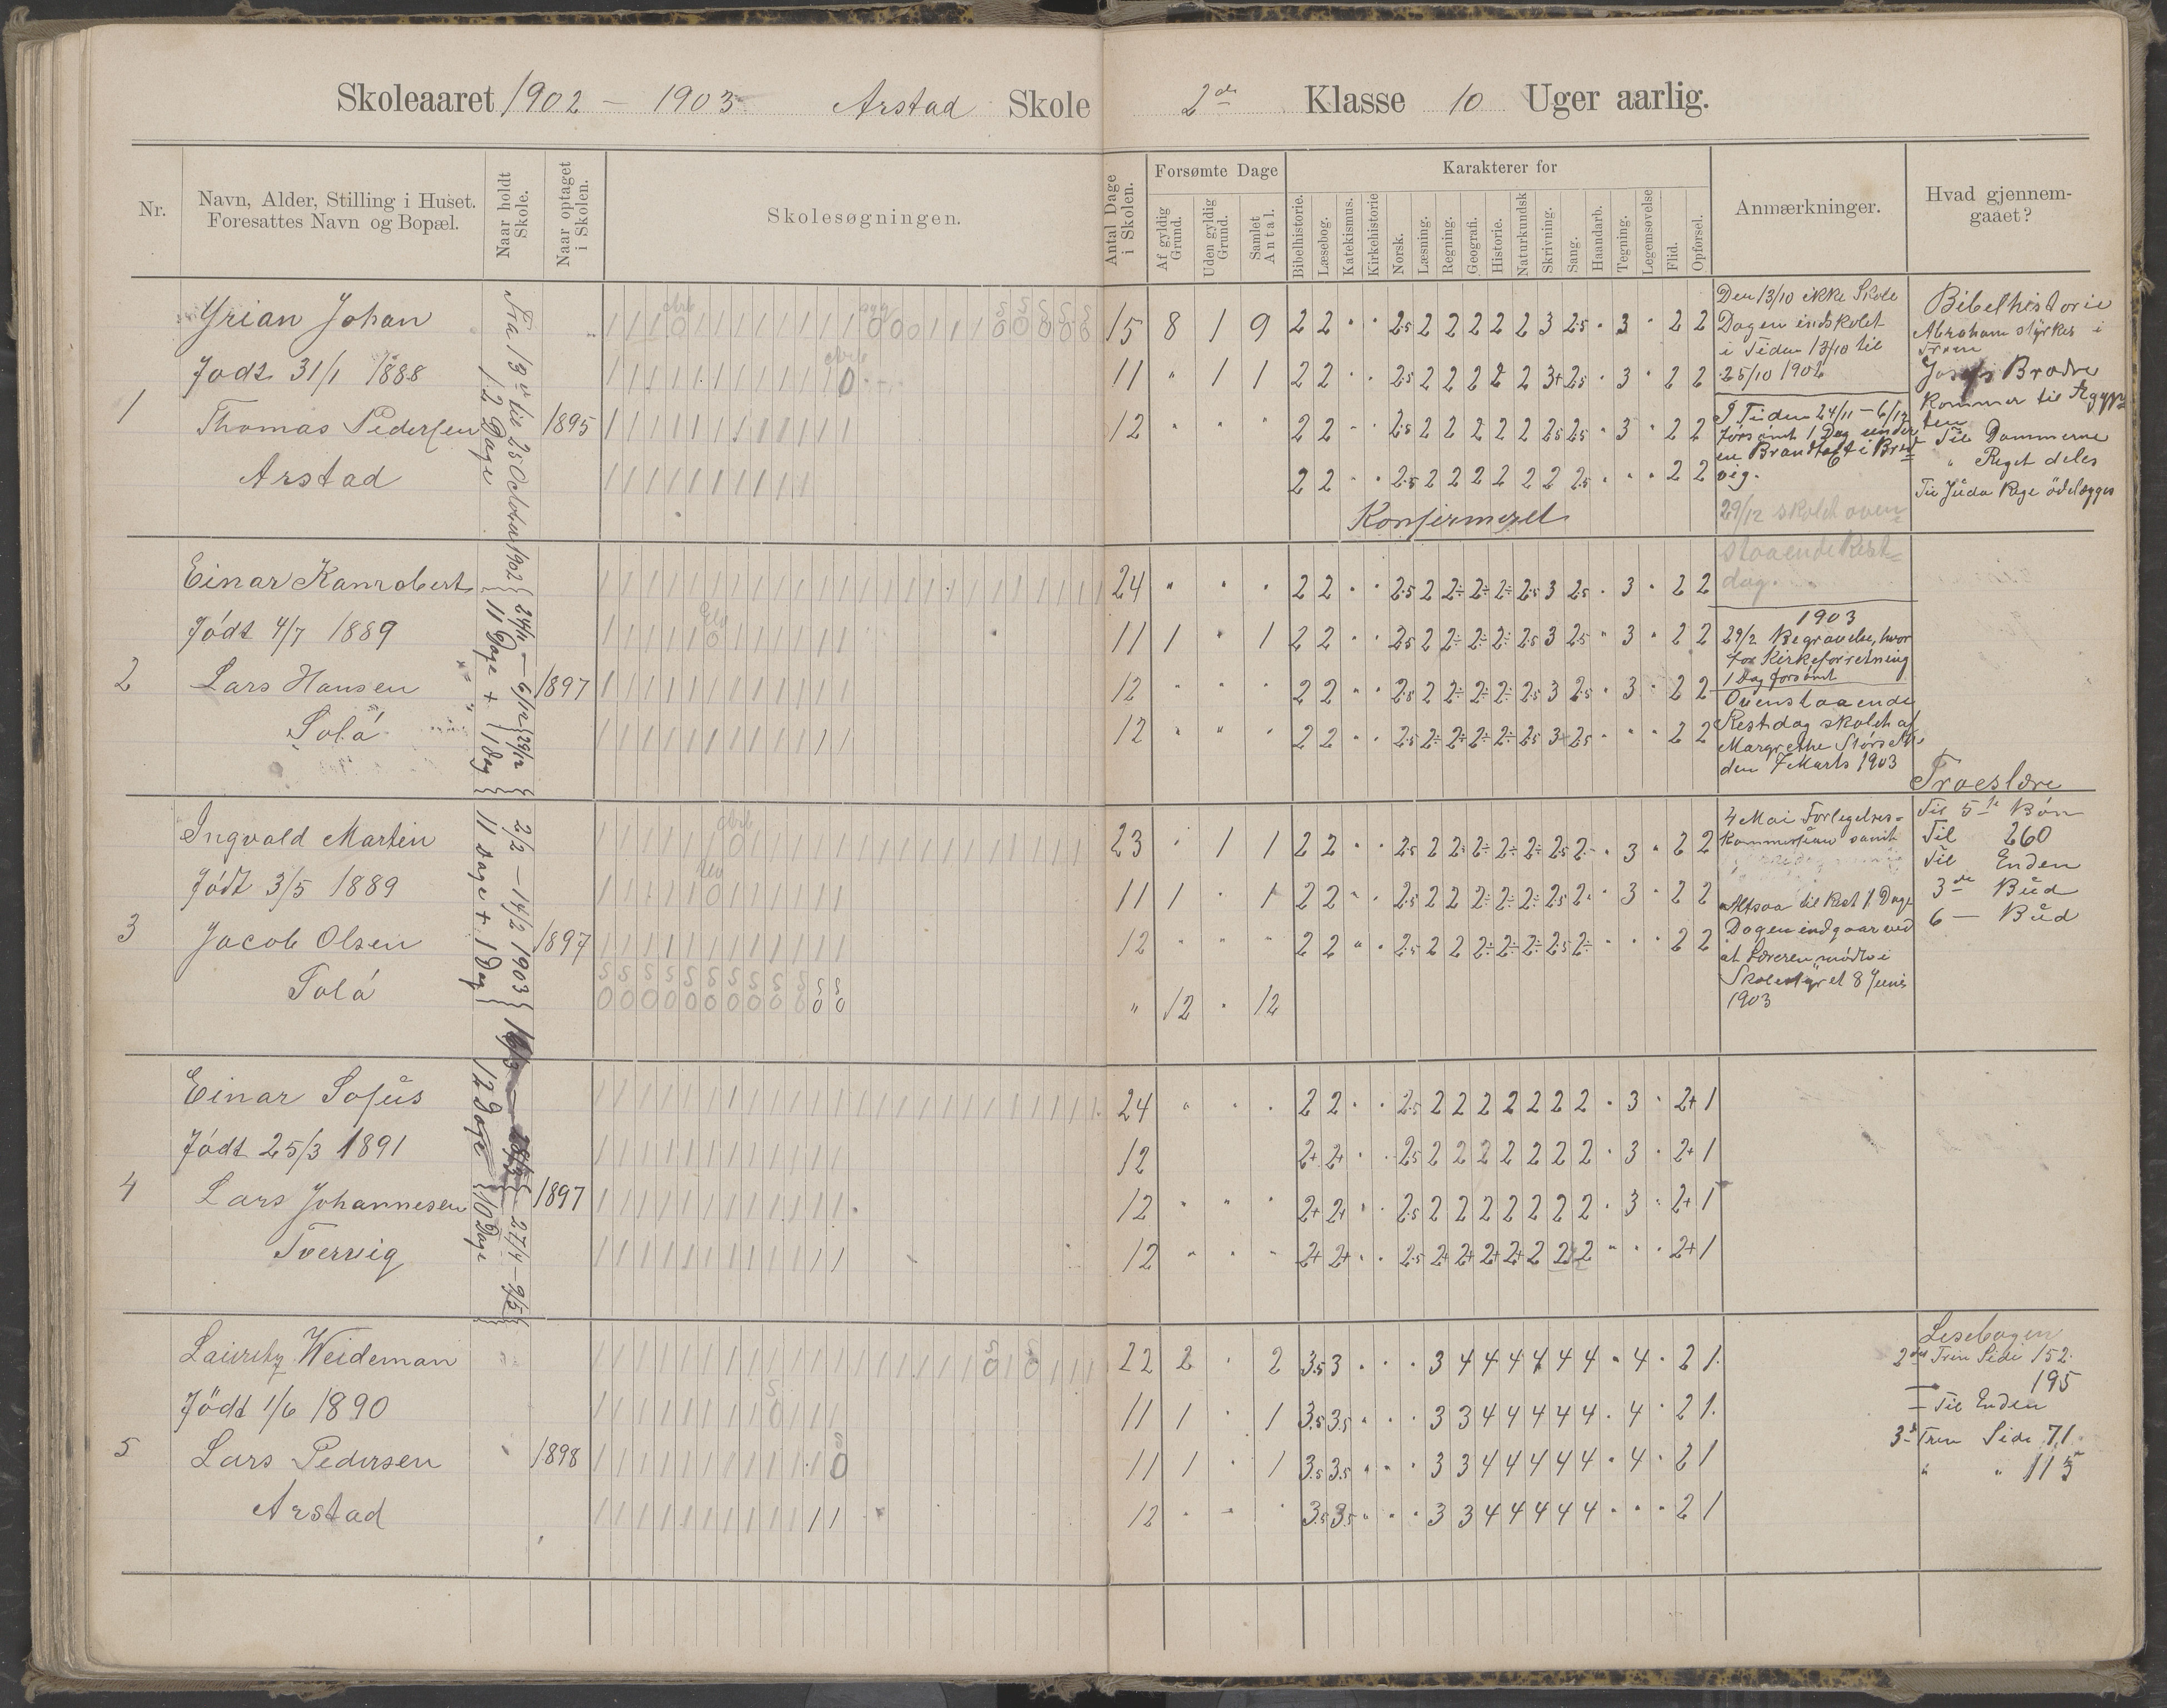 Skoleaaret 1902 – 1903 Arstad Skole 2de Klasse 10 Uger aarlig.
Nr.
Navn, Alder, Stilling i Huset.
Foresattes Navn og Bopæl.
Naar holdt
Skole.
Naar optaget
i Skolen.
Skolesøgningen.
Antal Dage
i Skolen.
Forsømte Dage
Af gyldig
Grund.
Uden gyldig
Grund.
Samlet
Antal.
Karakterer for
Bibelhistorie.
Læsebog.
Katekismus.
Kirkehistorie
Norsk.
Læsning.
Regning.
Geografi.
Historie.
Naturkundsk
Skrivning.
Sang.
Haandarb.
Tegning.
Legemsøvelse
Flid.
Opførsel.
Anmærkninger.
Hvad gjennem-
gaaet?
Fra 13de til 25 October 1902 24/11 – 6/12 29/12
12 Dage 11 Dage + 1 dag
2/2 – 14/2 1903
11 Dage + 1 Dag
12 Dage 10 Dage
27/4 – 9/5
1
Yrian Johan
Født 31/1 1888
Thomas Pedersen 1895
Arstad
15 8 1 9 2 2 2.5 2 2 2 2 2 3 2.5 3 2 2
11 " 1 1 2 2 2.5 2 2 2 2 2 3+ 2.5 3 2 2
12 " " " 2 2 2.5 2 2 2 2 2 2.5 2.5 3 2 2
2 2 2.5 2 2 2 2 2 2 2.5 2 2
Konfirmeret
Den 13/10 ikke Skole
Dagen indskolet
i Tiden 13/10 til
25/10 1902
I Tiden 24/11 – 6/12
forsømt 1 Dag under
en Brandtaft i Bred
vig.
29/12 skolet oven
staaende Rest-
dag.
Bibelhistorie
Abraham styrkes i
Troen
Josefs Brødre
kommer til Ægyp
ten
Til Dommerne
" Riget deles
Til Juda Rige ödelægges
2
Einar Kanrobert
Födt 4/7 1889
Lars Hansen 1897
Solå
24 " " " 2 2 2.5 2 2÷ 2÷ 2÷ 2.5 3 2.5 3 2 2
11 1 " 1 2 2 2.5 2 2÷ 2÷ 2÷ 2.5 3 2.5 3 2 2
12 " " " 2 2 2.5 2 2÷ 2÷ 2÷ 2.5 3 2.5 3 2 2
12 " " " 2 2 2.5 2÷ 2÷ 2÷ 2÷ 2.5 3+ 2.5 2 2
1903
29/2 Begravelse, hvor
for Kirkeforretning
1 Dag forsömt
Ovenstaaende
Restdag skolet af
Margrethe
den 7 Marts 1903
3
Ingvald Martin
Födt 3/5 1889
Jacob Olsen 1897
Solå
23 " 1 1 2 2 2.5 2 2 2÷ 2÷ 2÷ 2.5 2÷ 3 2 2
11 1 " 1 2 2 2.5 2 2 2÷ 2÷ 2÷ 2.5 2÷ 3 2 2
12 " " " 2 2 2.5 2 2 2÷ 2÷ 2÷ 2.5 2÷ 2 2
" 12 " 12
4 Mai Forlegelses-
Kommission samt
Altsaa til Rest 1 Dag
Dagen indgaar ved
at Læreren mödte i
Skolestyret 8 Juni
1903
Troeslære
Til 5te Bön
Til 260
Til Enden
3de Bud
6 — Bud
4
Einar Sofus
Födt 25/3 1891
Lars Johannesen 1897
Tvervig
24 " " " 2 2 2.5 2 2 2 2 2 2 2 3 2+ 1
12 2+ 2+ 2.5 2 2 2 2 2 2 2 3 2+ 1
12 " " " 2+ 2+ 2.5 2 2 2 2 2 2 2 3 2+ 1
12 " " " 2+ 2+ 2.5 2+ 2+ 2+ 2+ 2 2 2 2+ 1
5
Lauritz Weideman
Födt 1/6 1890
Lars Pedersen 1898
Arstad
22 2 " 2 3.5 3 3 4 4 4 4 4 4 4 4 2 1
11 1 " 1 3.5 3.5 3 3 4 4 4 4 4 4 4 2 1
11 1 " 1 3.5 3.5 3 3 4 4 4 4 4 4 4 2 1
12 " " " 3.5 3.5 3 3 4 4 4 4 4 4 2 1
Lesebogen
2det Trin Side 152
— 195
— Til Enden
3d Trin Side 71
" " 115